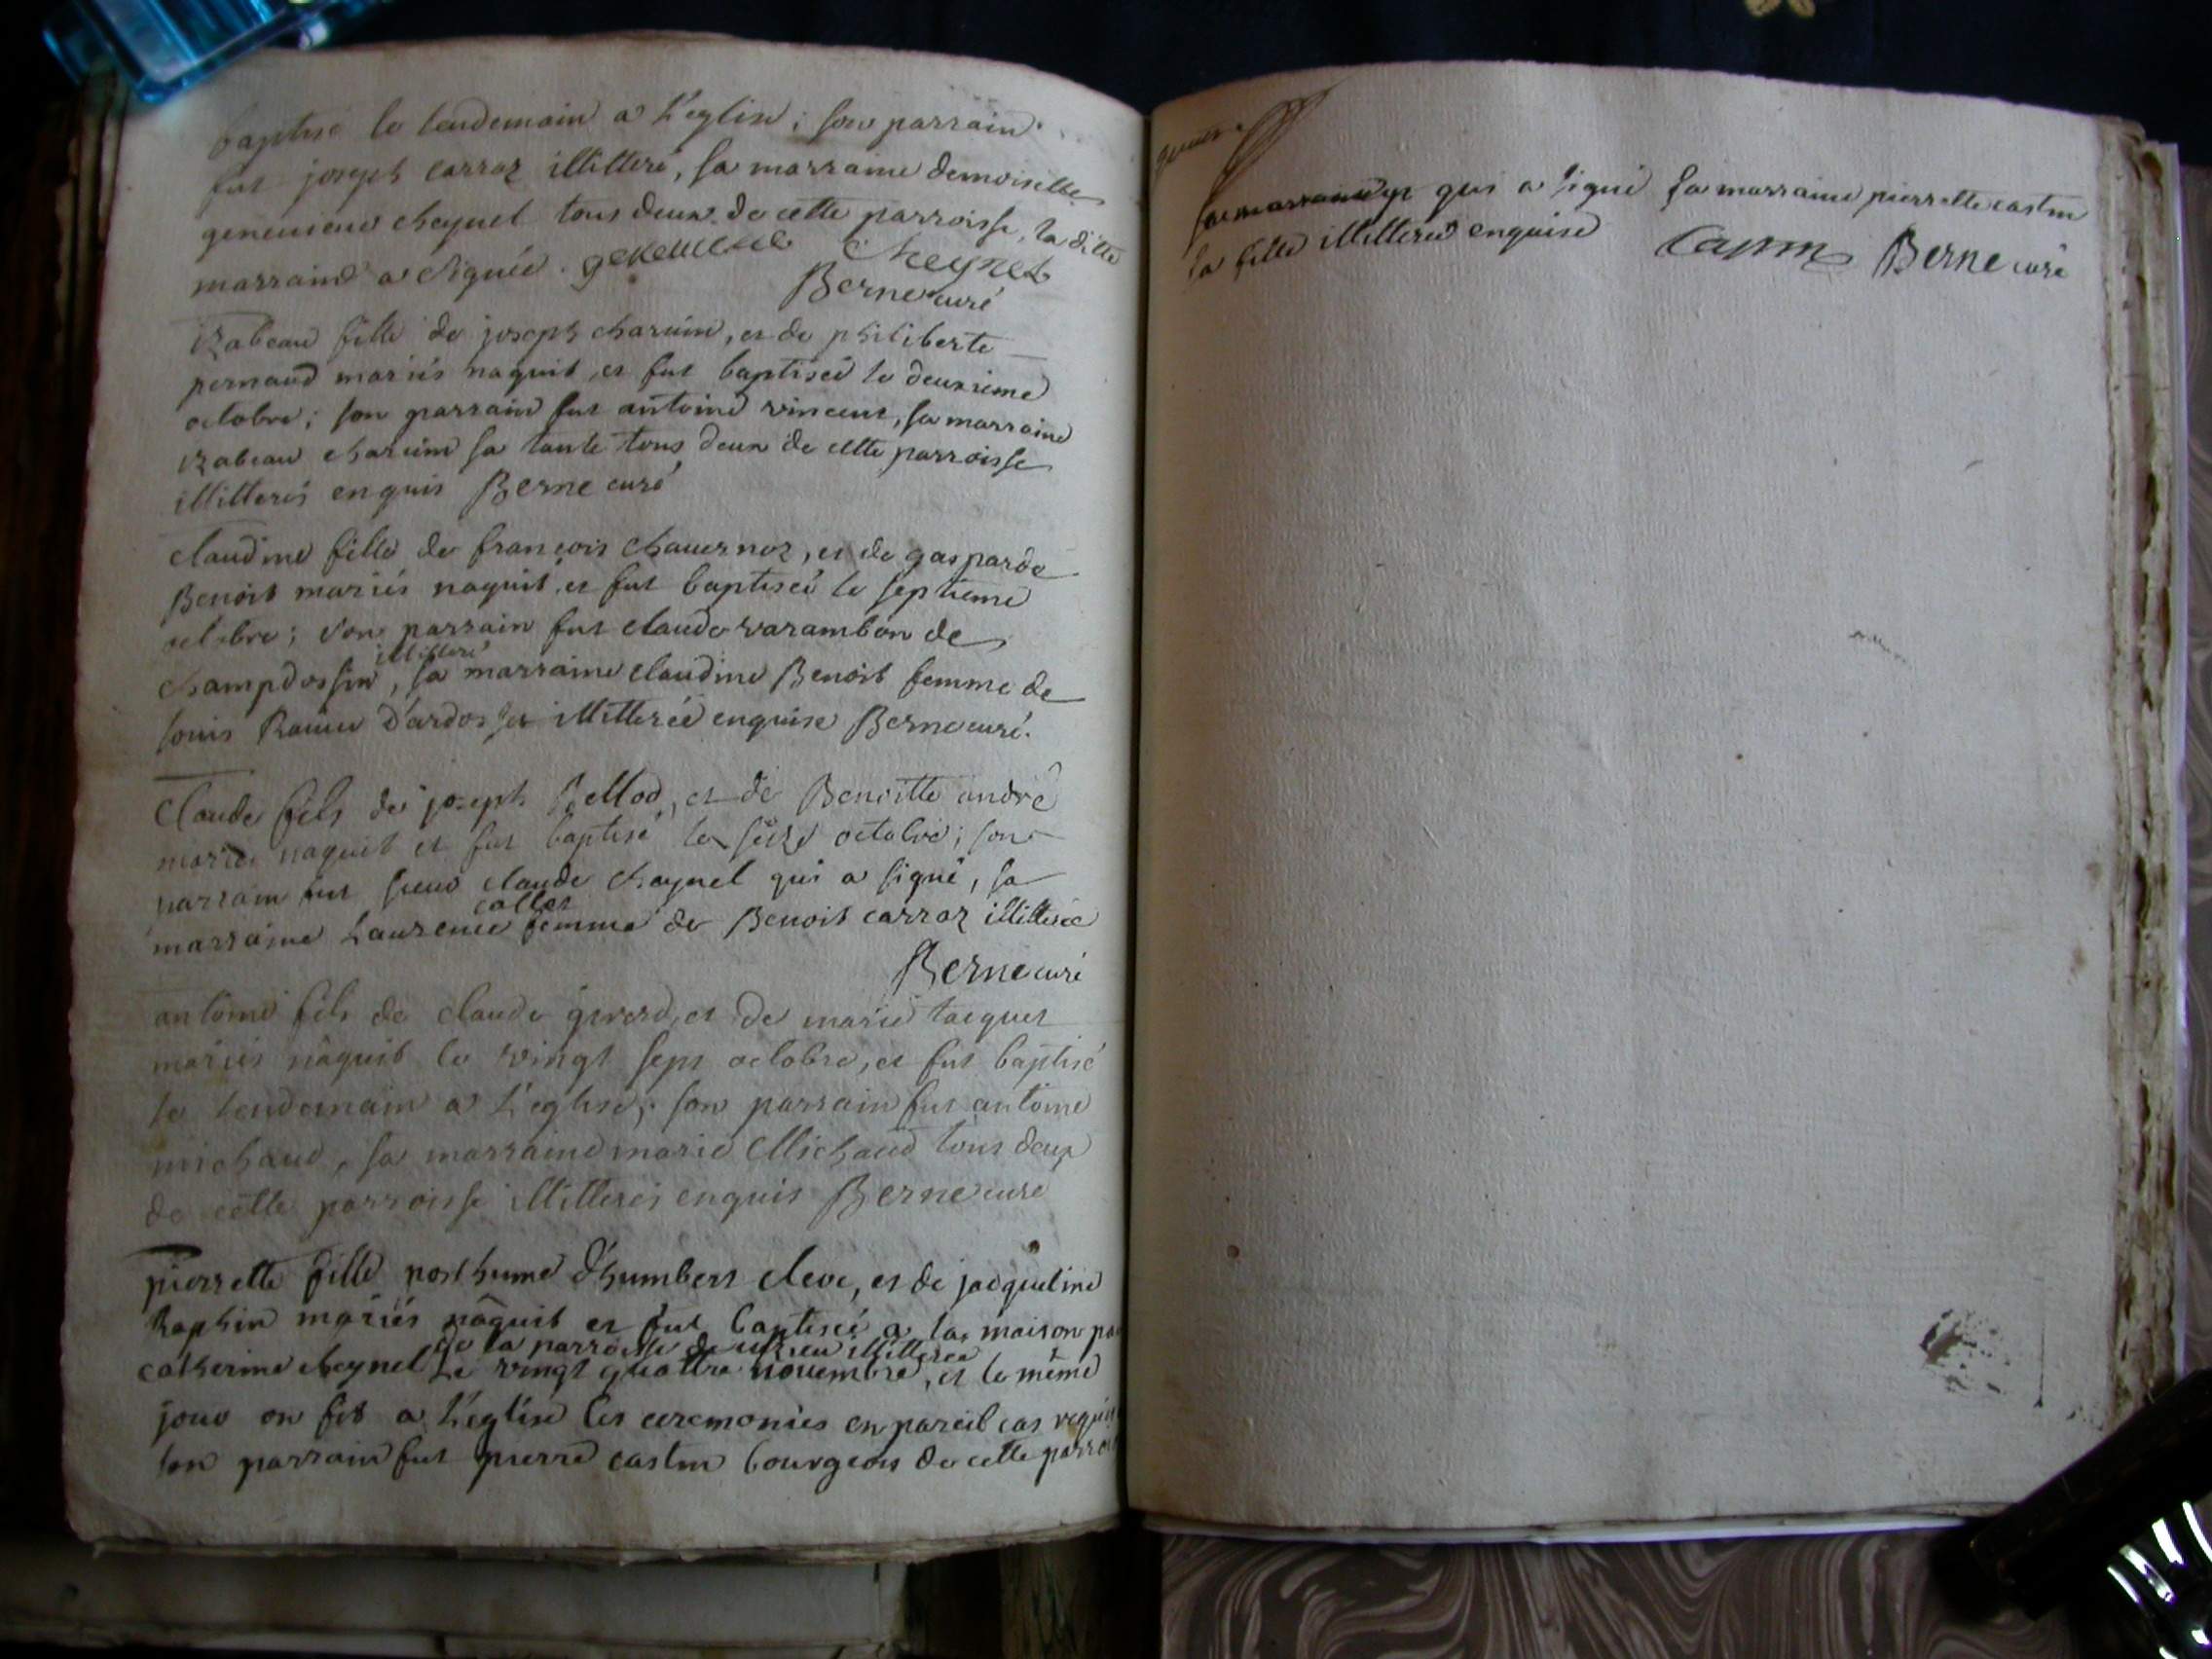 baptisé le lendemain a l'eglise ; son parrain
fut joseph carraz illitteré, sa marraine demoiselle
genevieve cheynel tous deux de cette parroisse, la ditte
marraine a signée . genevieve Cheynel
Berne curé
izabeau fille de joseph charuin, et de philiberte
pernaud mariés naquit et fut baptisée le deuxieme
octobre ; son parrain fut antoine vincent, sa marraine
izabeau charuin sa tante tous deux de cette parroisse
illitterés enquis Berne curé
claudine fille de françois chavernoz, et de gasparde
Benoit mariés naquit, et fut baptisée le septieme
octobre ; son parrain fut claude varambon de
illitteré
champdossin, sa marraine claudine Benoit femme de
louis d'ardosset illitterée enquise Berne curé.
Claude fils de joseph et de Benoitte andré
mariés naquit et fut baptisé le seize octobre ; son
parrain fut sieur claude cheynel qui a signé, sa
callet
marraine Laurence femme de Benoit carraz illitterée
Berne curé
antoine fils de claude girerd, et de marie jacquet
mariés naquit le vingt sept octobre, et fut baptisé
le lendemain a l'eglise ; son parrain fut antoine
michaud, sa marraine marie Michaud tous deux
de cette parroisse illitterés enquis Berne curé
pierrette fille posthume d'humbert cleve, et de jacqueline
Raphin mariés naquit et fut baptisée a la maison par
de la parroisse de illitterée
catherine cheynel le vingt quattre novembre, et le même
jour on fit a l'eglise les ceremonies en pareil cas
son parrain fut pierre castin bourgeois de cette
qui a signé sa marraine pierrette castin
sa fille illitterée enquise Castin Berne curé